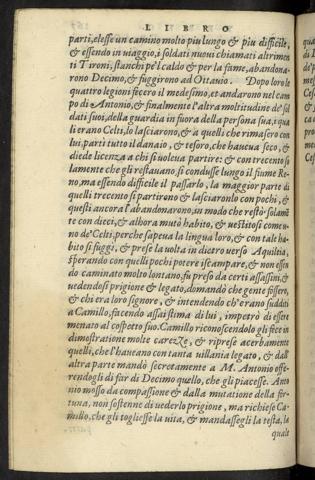 LIBRO
parti, elesse un camino molto piu lungo & piu difficile,
& essendo in uiaggio, i soldati nuovi chiamati altrimen
ti Tironi, stanchi pe'l caldo & per la fame, abandona-
rono Decimo, & fuggirono ad Ottauio. Dopo loro le
quattro legioni fecero il medesimo, et andarono nel cam
po di Antonio, & finalmente l'altra moltitudine de' sol
dati suoi, della guardia in fuora della persona sua, i qua
li erano Celti, lo lasciarono, & a quelli che rimasero con
lui partì tutto il danaio, & tesoro, che haueua seco, &
diede licenza a chi si uoleua partire: & con trecento so
lamente che gli restauano, si condusse lungo il fiume Re-
no, ma essendo difficile il passarlo, la maggior parte di
quelli trecento si partirono & lasciaronlo con pochi, &
questi ancora l'abandonarono, in modo che restò solamē
te con dieci, & alhora mutò habito, & uestitosi come u-
no de' Celti, perche sapeua la lingua loro, & con tale ha-
bito si fuggì, & prese la uolta in dietro uerso Aquileia,
sperando con quelli pochi potere iscampare, & non essen
do caminato molto lontano, fu preso da certi assassini, &
uedendosi prigione & legato, domandò che gente fossero,
& chi era loro signore, & intendendo ch'erano sudditi
a Camillo, facendo assai stima di lui, impetrò di essere
menato al cospetto suo. Camillo riconoscendolo gli fece in
dimostratione molte carezze, & riprese acerbamente
quelli, che l'haueano con tanta uillania legato, & dall'
altra parte mandò secretamente a M. Antonio offe-
rendogli di far di Decimo quello, che gli piacesse. Anto
nio mosso da compassione & dalla mutatione della for-
tuna, non sostenne di uederlo prigione, ma richiese Ca-
millo, che gli togliesse la uita, & mandassegli la testa, la
quale